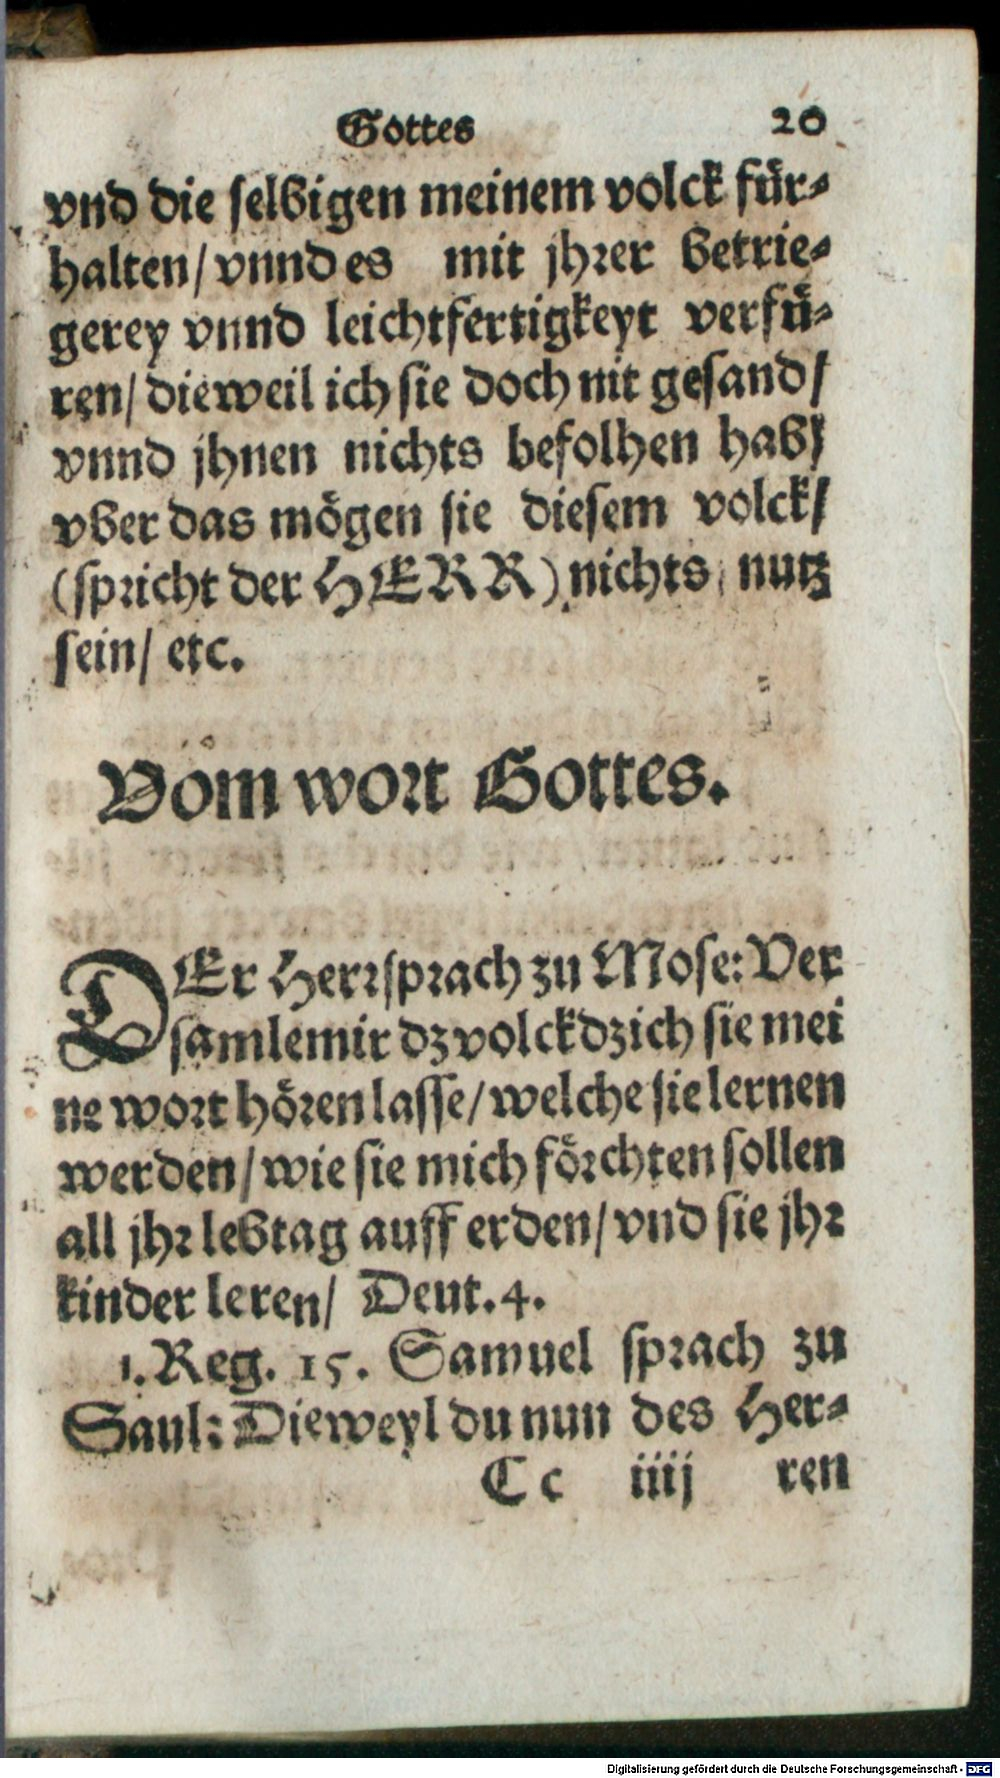 Gottes 20
vnd die selbigen meinem volck für-
halten/ vnnd es mit jhrer betrie-
gerey vnnd leichtfertigkeyt verfü-
ren/ dieweil ich sie doch nit gesand/
vnnd jhnen nichts befolhen hab/
vber das mögen sie diesem volck/
(spricht der HERR) nichts nutz
sein/ etc.
Vom wort Gottes.
DEr Herr sprach zu Mose: Ver
samle mir dz volck dz ich sie mei
ne wort hören lasse/ welche sie lernen
werden/ wie sie mich förchten sollen
all jhr lebtag auff erden/ vnd sie jhr
kinder leren/ Deut. 4.
1. Reg. 15. Samuel sprach zu
Saul: Dieweyl du nun des Her-
Cc iiij ren
Digitalisierung gefördert durch die Deutsche Forschungsgemeinschaft - DFG